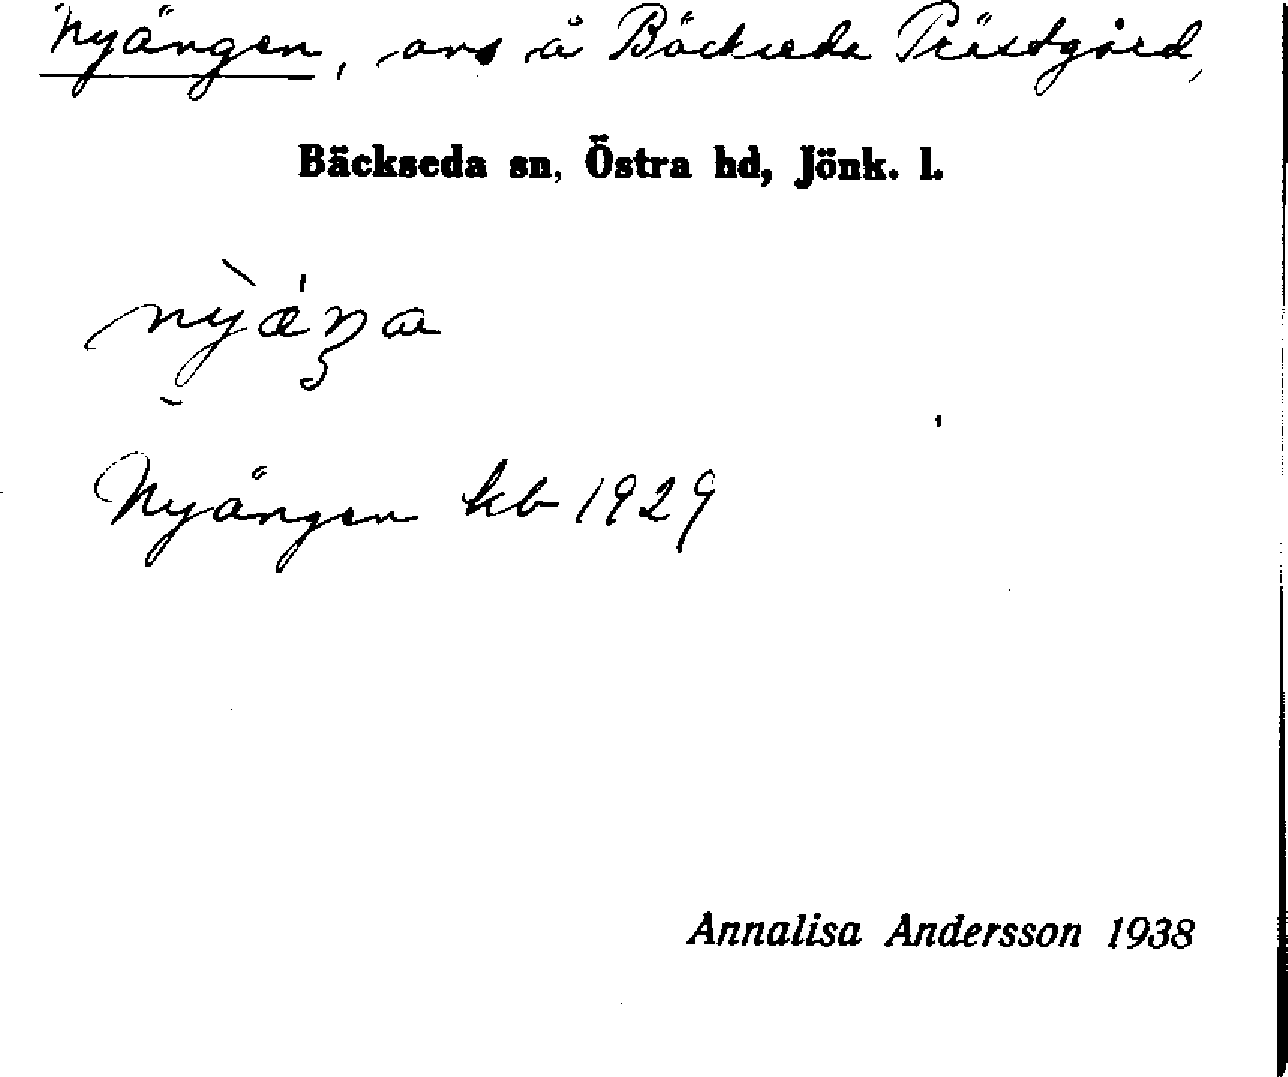 Nyängen, avs å Bäckseda Prästgård,
Bäckseda sn, Östra hd, Jönk. l.
Nyängen kb 1929
Annalisa Andersson 1938